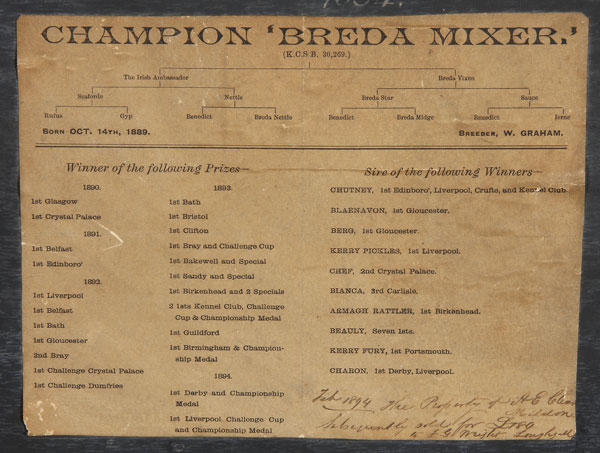 CHAMPION 'BREDA MIXER.'
(K.C.S.B. 30,269.)
The Irish Ambassador
Breda Vixen
Seaforde
Nettle
Breda Star
Sauce
Rufus
Gyp
Benedict
Breda Nettle
Benedict
Breda Midge
Benedict
Ierne
BORN OCT. 14TH, 1889.
BREEDER, W. GRAHAM.
Winner of the following Prizes—
1890.
1st Glasgow
1st Crystal Palace
1891.
1st Belfast
1st Edinboro'
1892.
1st Liverpool
1st Belfast
1st Bath
1st Gloucester
2nd Bray
1st Challenge Crystal Palace
1st Challenge Dumfries
1893.
1st Bath
1st Bristol
1st Clifton
1st Bray and Challenge Cup
1st Bakewell and Special
1st Sandy and Special
1st Birkenhead and 2 Specials
2 1sts Kennel Club, Challenge
Cup & Championship Medal
1st Guildford
1st Birmingham & Champion-
ship Medal
1894.
1st Derby and Championship
Medal
1st Liverpool Challenge Cup
and Championship Medal
Sire of the following Winners—
CHUTNEY, 1st Edinboro', Liverpool, Crufts, and Kennel Club.
BLAENAVON, 1st Gloucester.
BERG, 1st Gloucester.
KERRY PICKLES, 1st Liverpool.
CHEF, 2nd Crystal Palace.
BIANCA, 3rd Carlisle.
ARMAGH RATTLER, 1st Birkenhead.
BEAULY, Seven 1sts.
KERRY FURY, 1st Portsmouth.
CHARON, 1st Derby, Liverpool.
Feb 1894 The Property of H E
Subsequently sold for
to Wright